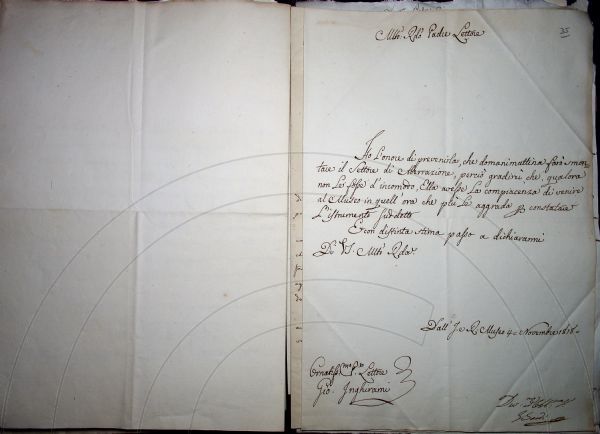 35
Mto Rdo Padre Lettore
Ho l'onore di prevenirla, che domani mattina farò smon-
tare il Settore di Aberrazione, perciò gradirei che, qualora
non Le fosse d'incomodo, Ella avesse la compiacenza di venire
al Museo in quell'ora che più Le aggrada per constatare
L'istrumento sudetto
E con distinta stima passo a dichiararmi
Di V.S. Mto Rda
Dall' I. e R. Museo 4 Novembre 1818
Ornatissmo P. Lettore
Gio. Inghirami